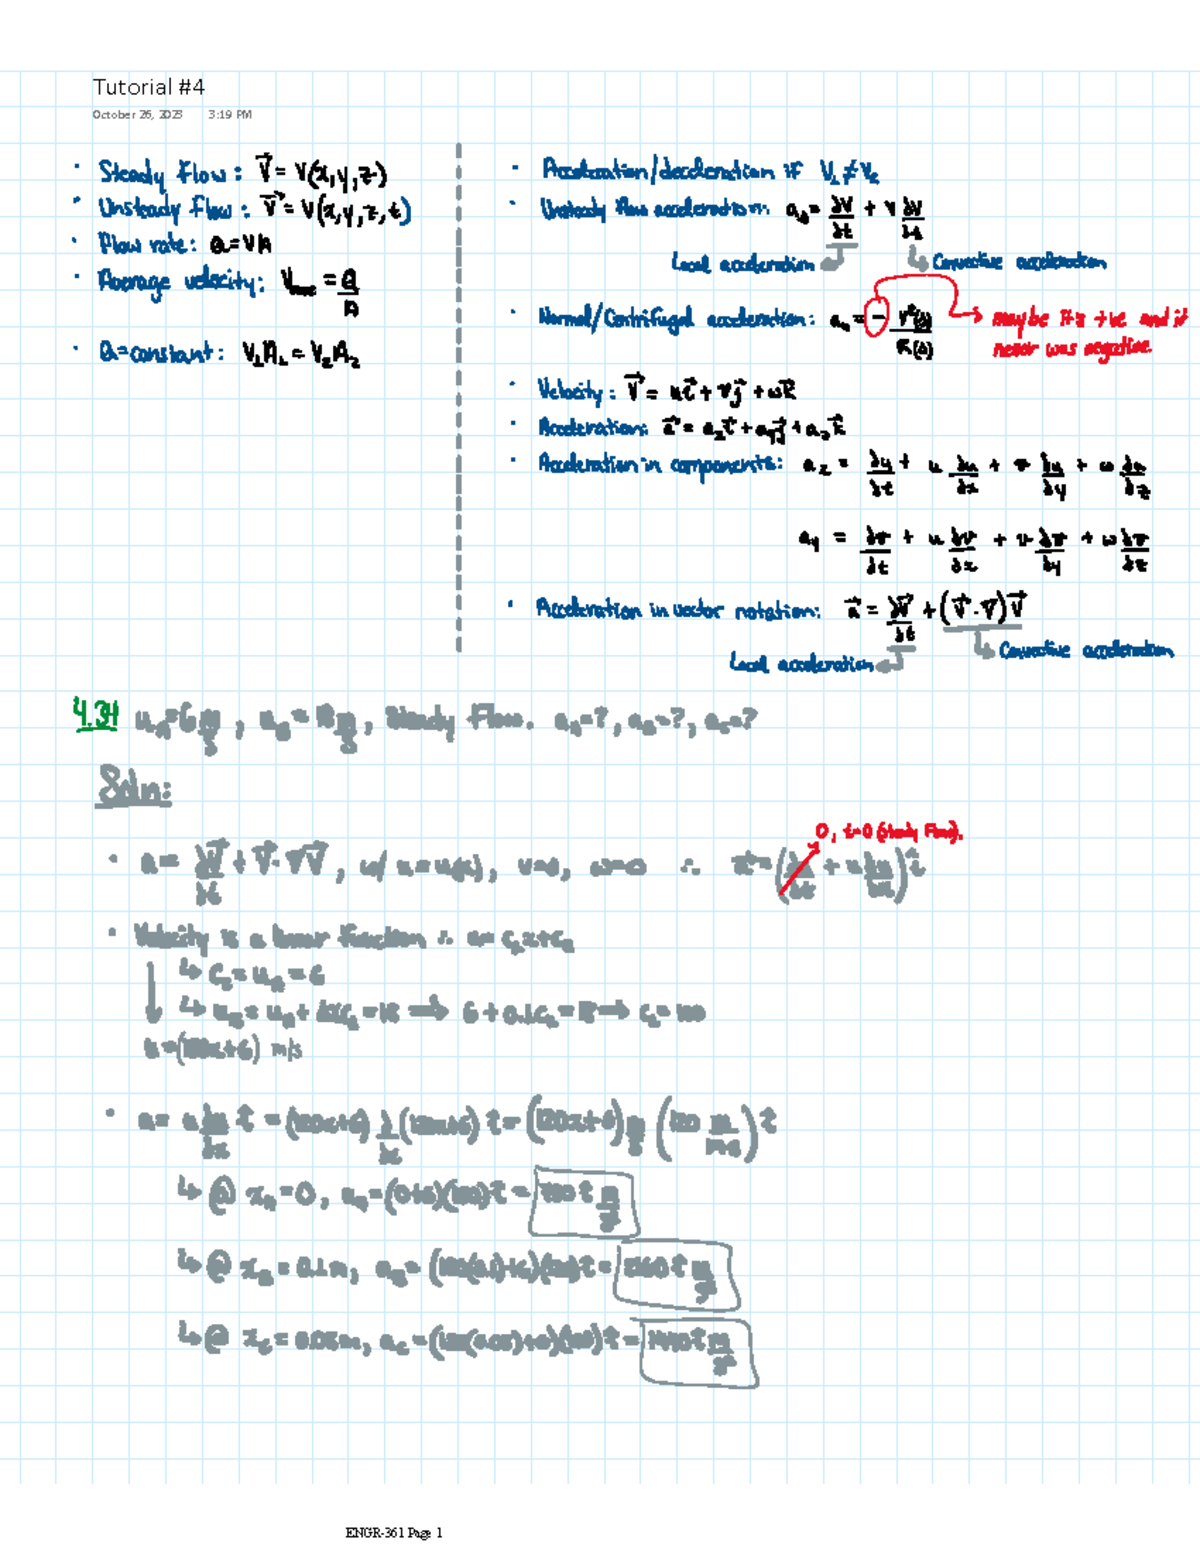 Tutorial #4
October 26, 2023 3:19 PM
· Steady Flow: V⃗ = V(x,y,z)
· Unsteady Flow: V⃗ = V(x,y,z,t)
· Flow rate: Q=VA
· Average velocity: V = Q/A
· Q=constant: V₁A₁ = V₂A₂
· Acceleration/deceleration if V₁≠V₂
· Unsteady flow acceleration: aₛ = ∂V/∂t + V ∂V/∂s
Local acceleration
Convective acceleration
· Normal/Centrifugal acceleration: aₙ = - V²(s)/R(s)
maybe it's +ve and it
never was negative.
· Velocity: V⃗ = uî + vĵ + wk̂
· Acceleration: a⃗ = aₓî + a_yĵ + a_zk̂
· Acceleration in components: aₓ = ∂u/∂t + u ∂u/∂x + v ∂u/∂y + w ∂u/∂z
a_y = ∂v/∂t + u ∂v/∂x + v ∂v/∂y + w ∂v/∂z
· Acceleration in vector notation: a⃗ = ∂V⃗/∂t + (V⃗·∇)V⃗
Local acceleration
Convective acceleration
4.34 u_A=6 m/s, u_B=18 m/s, Steady Flow. a_A=?, a_B=?, a_C=?
Soln:
0, t=0 (Steady Flow).
· a = ∂V⃗/∂t + V⃗·∇V⃗, w/ u=u(x), v=0, w=0 ∴ a⃗ = (∂u/∂t + u ∂u/∂x) î
· Velocity is a linear function ∴ u= C₁x+C₂
↳ C₂= u_A = 6
↳ u_B = u_A + 0.1C₁ = 18 ⟹ 6 + 0.1C₁ = 18 ⟹ C₁ = 120
u=(120x+6) m/s
· a= u ∂u/∂x î = (120x+6) ∂/∂x (120x+6) î = (120x+6) m/s (120 m/m·s) î
↳ @ x_A=0, a_A=(0+6)(120) î = 720 î m/s²
↳ @ x_B = 0.1m, a_B = (120(0.1)+6)(120) î = 2160 î m/s²
↳ @ x_C = 0.05m, a_C = (120(0.05)+6)(120) î = 1440 î m/s²
ENGR-361 Page 1